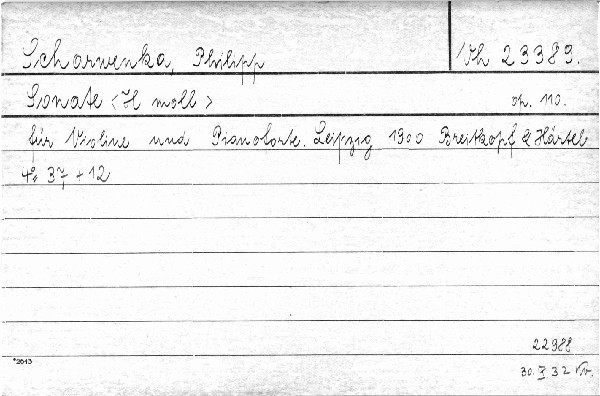 Scharwenka, Philipp
Vh 23389.
Sonate <H moll>
op. 110.
für Violine und Pianoforte. Leipzig 1900 Breitkopf & Härtel
4° 37 + 12
22988
*2613
30. X 32